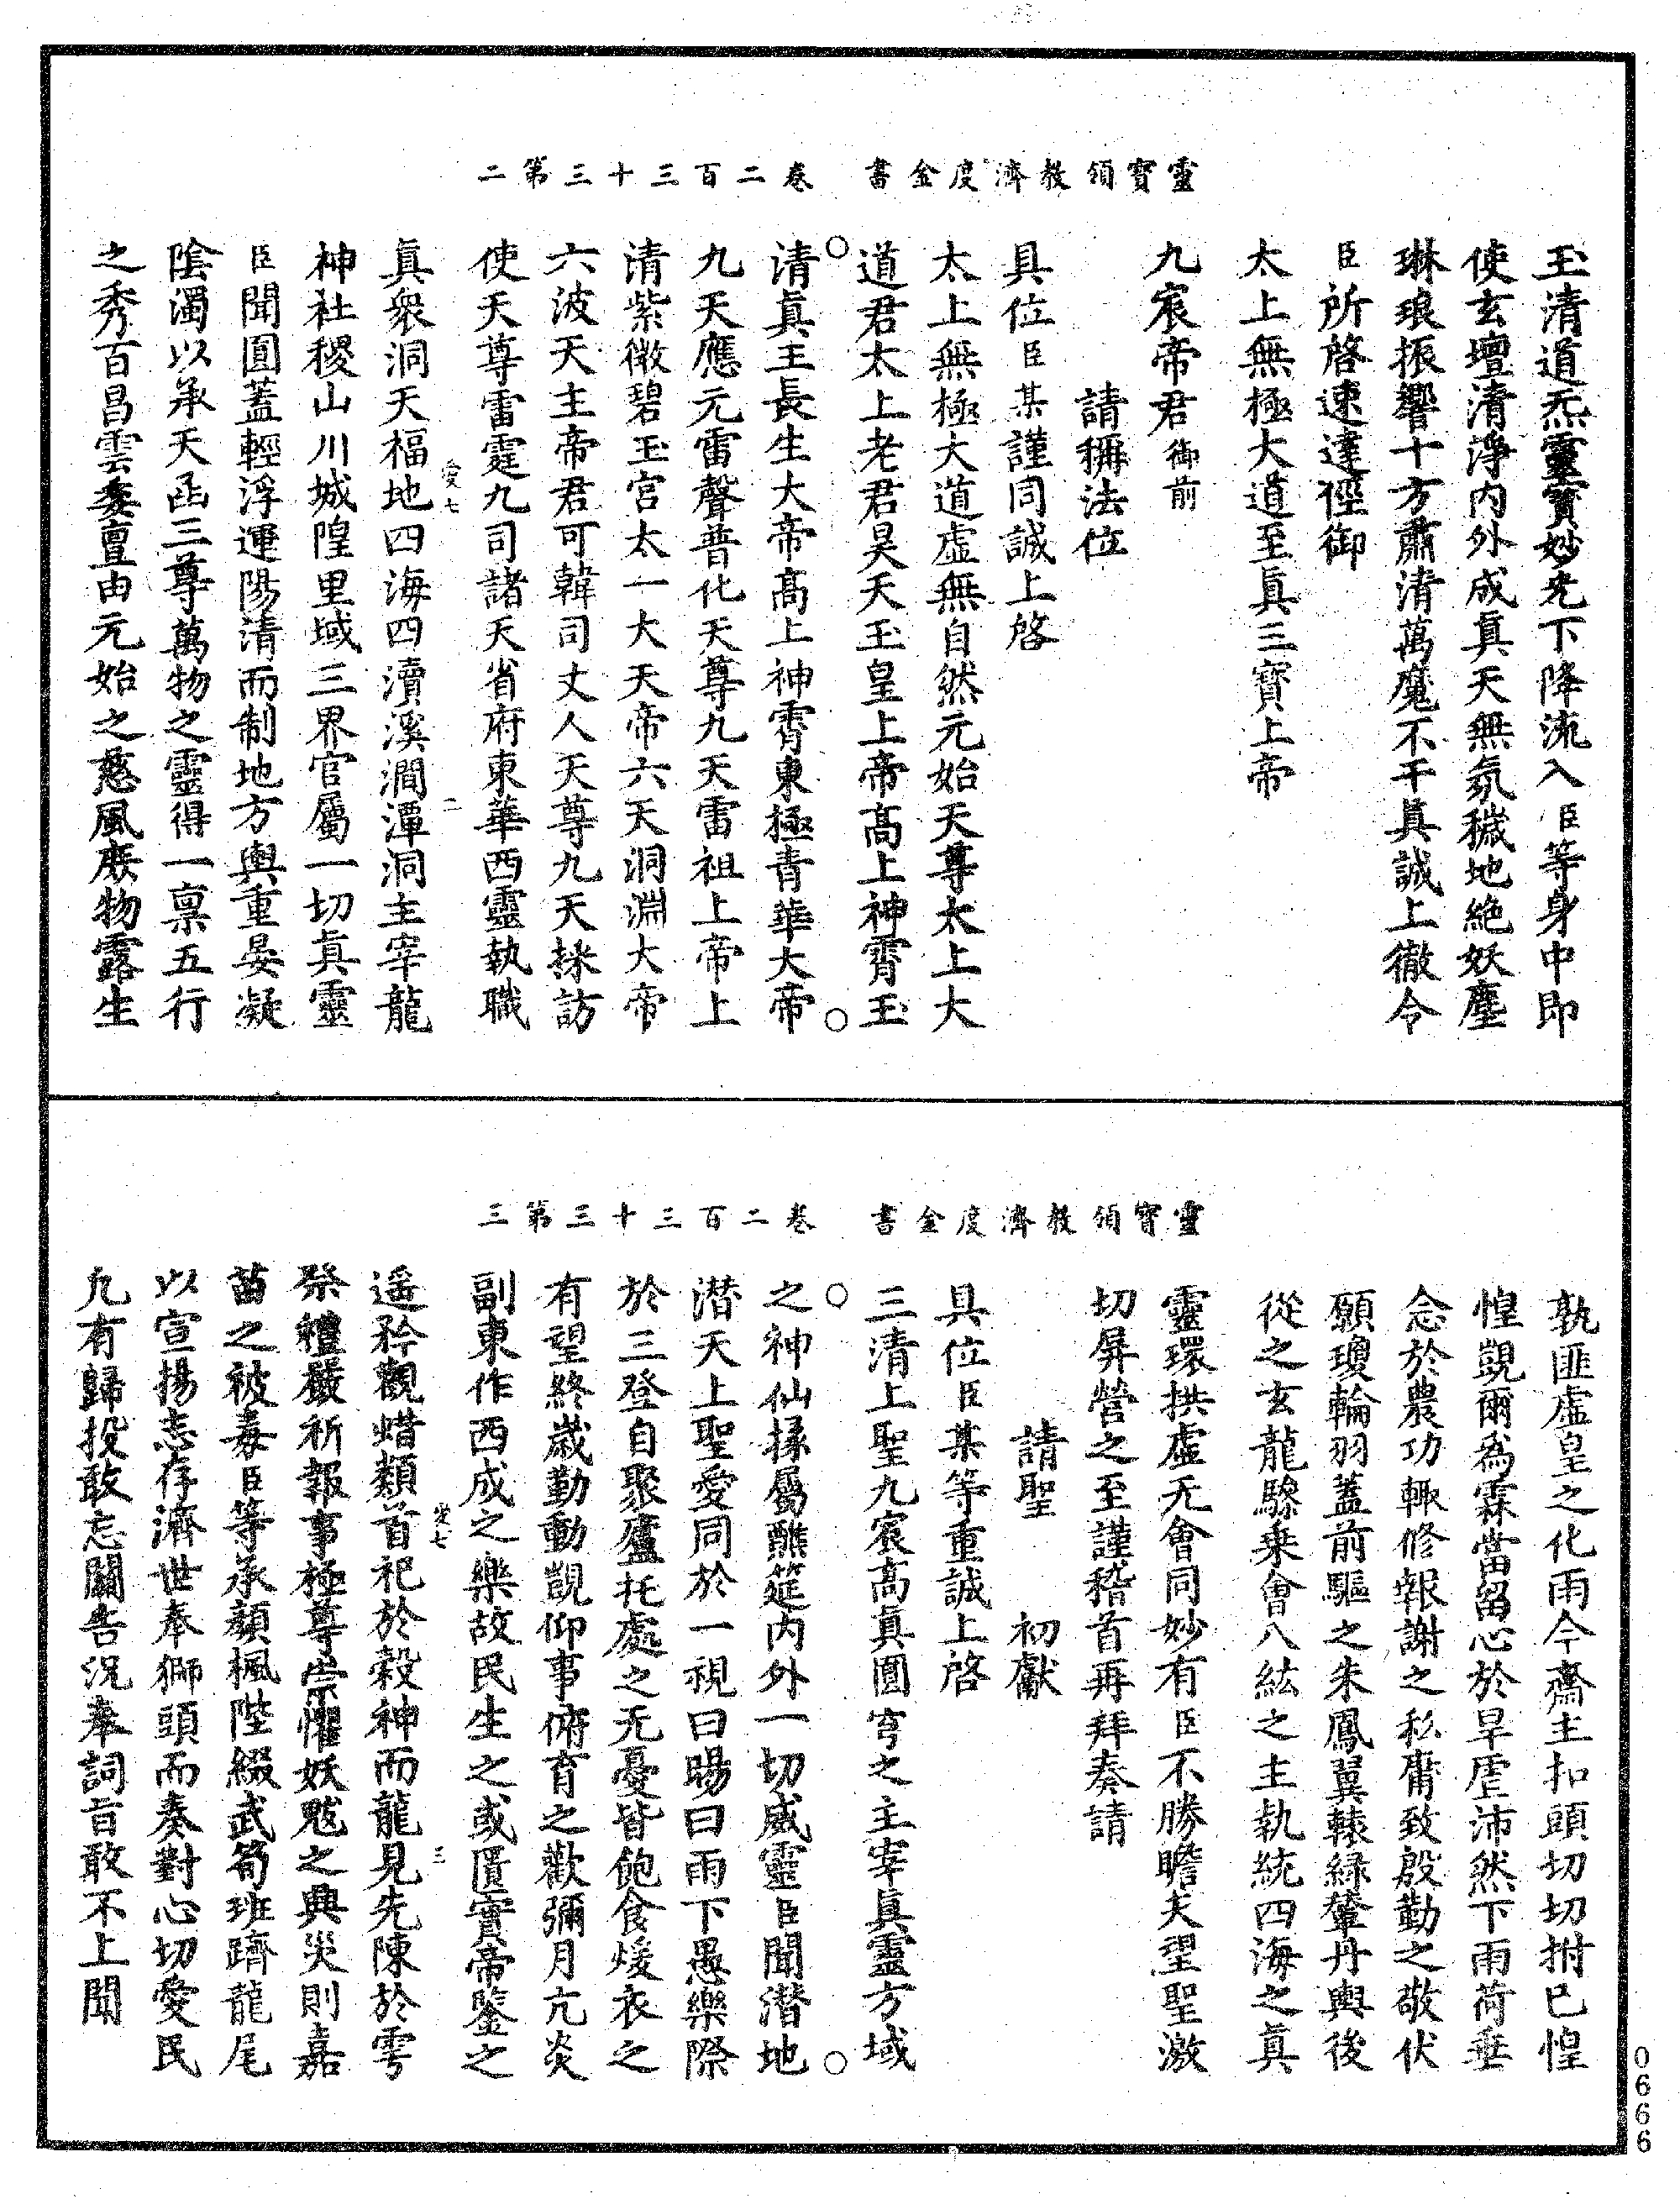 靈寶領教濟度金書　卷二百三十三第二
玉清道炁靈寶妙光下降流入臣等身中即
使玄壇清淨內外成真天無氛穢地絕妖塵
琳琅振響十方肅清萬魔不干真誠上徹令
臣所啓速達徑御
太上無極大道至真三寶上帝
九宸帝君御前
請稱法位
具位臣某謹同誠上啓
太上無極大道虛無自然元始天尊太上大
道君太上老君昊天玉皇上帝高上神霄玉
清真王長生大帝高上神霄東極青華大帝
九天應元雷聲普化天尊九天雷祖上帝上
清紫微碧玉宮太一大天帝六天洞淵大帝
六波天主帝君可韓司丈人天尊九天採訪
使天尊雷霆九司諸天省府東華西靈執職
真衆洞天福地四海四瀆溪澗潭洞主宰龍
愛七　二
神社稷山川城隍里域三界官屬一切真靈
臣聞圓蓋輕浮運陽清而制地方輿重晏凝
陰濁以承天函三尊萬物之靈得一禀五行
之秀百昌雲委亶由元始之慈風庶物露生
靈寶領教濟度金書　卷二百三十三第三
孰匪虛皇之化雨今齋主扣頭切切拊已惶
惶覬爾為霖當留心於旱虐沛然下雨荷垂
念於農功輒修報謝之私庸致殷勤之敬伏
願瓊輪羽蓋前驅之朱鳳翼轅綠輦丹輿後
從之玄龍驂乗會八紘之主執統四海之真
靈環拱虛无會同妙有臣不勝瞻天望聖激
切屏營之至謹稽首再拜奏請
請聖　初獻
具位臣某等重誠上啓
三清上聖九宸高真圓穹之主宰真靈方域
之神仙掾屬醮筵內外一切威靈臣聞潜地
潜天上聖愛同於一視曰暘曰雨下愚樂際
於三登自聚廬托處之无憂皆飽食煖衣之
有望終歲勤動覬仰事俯育之歡彌月亢炎
副東作西成之樂故民生之或匱實帝鑒之
遥矜觀蜡類首祀於穀神而龍見先陳於雩
愛七　三
祭禮嚴祈報事極尊崇懼妖魃之興災則嘉
苗之被毒臣等承顏楓陛綴武笱班躋龍尾
以宣揚志存濟世奉獅頭而奏對心切愛民
凡有歸投敢忘關告況奉詞旨敢不上聞
0666